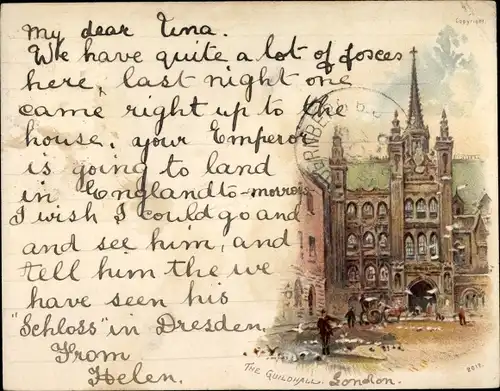 Copyright.
My dear Tina.
We have quite a lot of foxes
here, last night one
came right up to the
house. your Emperor
is going to land
in England to-morrow
I wish I could go and
and see him, and
tell him the we
have seen his
"Schloss" in Dresden.
From
Helen.
THE GUILDHALL. London.